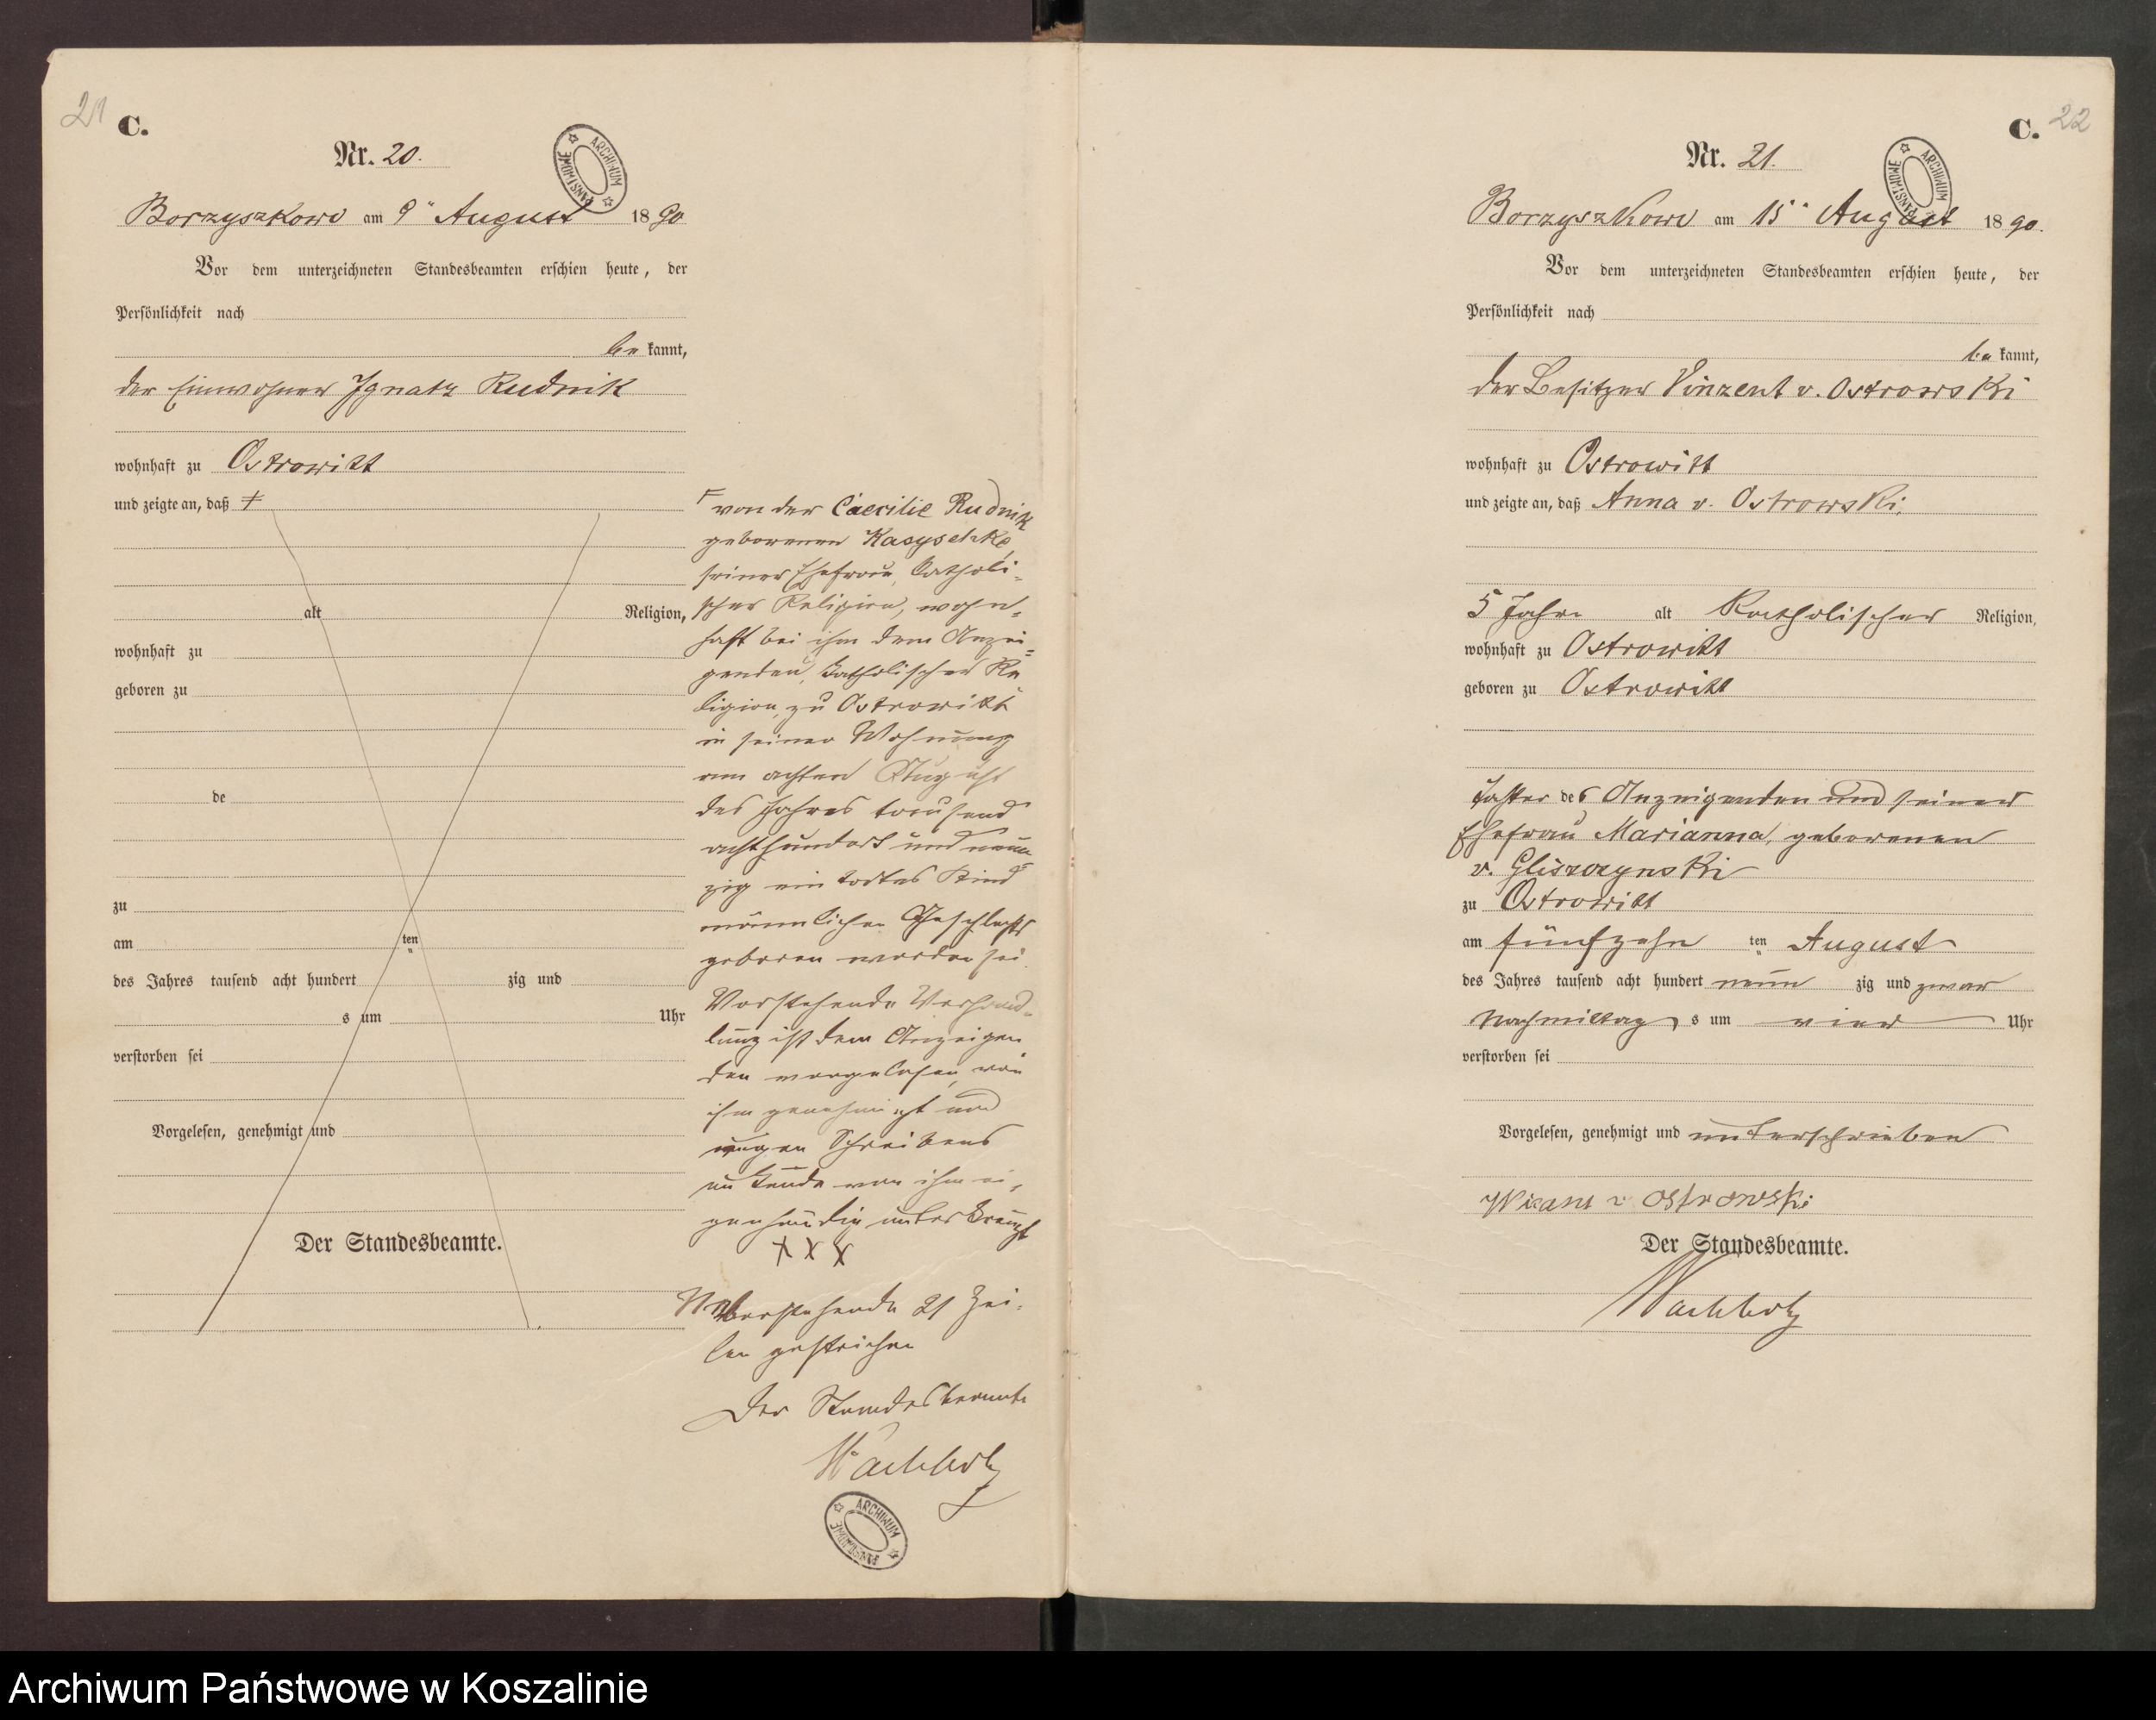 21
C.
Nr. 20.
ARCHIWUM PAŃSTWOWE
Borzyszkowo am 9" August 1890
Vor dem unterzeichneten Standesbeamten erschien heute, der
Persönlichkeit nach
be kannt,
der Einwohner Ignatz Rudnik
wohnhaft zu Ostrowitt
und zeigte an, daß
alt Religion,
wohnhaft zu
geboren zu
de
zu
am ten
des Jahres tausend acht hundert zig und
s um Uhr
verstorben sei
Vorgelesen, genehmigt und
Der Standesbeamte.
von der Caecilie Rudnik
geborenen
seiner Ehefrau, katholi-
scher Religion, wohn-
haft bei ihm dem Anzei-
genden, katholischer Re
ligion, zu Ostrowitt
in seiner Wohnung
am achten August
des Jahres tausend
achthundert und neun
zig ein todtes Kind
männlichen Geschlechts
geboren worden sei.
Vorstehende Verhand-
lung ist dem Anzeigen
den vorgelesen, von
ihm genehmigt und
wegen Schreibens
unkunde von ihm ei-
genhändig unterkreuzt
X X X
Nebenstehende 21 Zei-
len gestrichen
Der Standesbeamte
Wachholz
ARCHIWUM PAŃSTWOWE
C. 22
Nr. 21.
ARCHIWUM PAŃSTWOWE
Borzyszkowo am 15" August 1890.
Vor dem unterzeichneten Standesbeamten erschien heute, der
Persönlichkeit nach
be kannt,
der Besitzer Vinzent v. Ostrowski
wohnhaft zu Ostrowitt
und zeigte an, daß Anna v. Ostrowski,
5 Jahre alt Katholischer Religion,
wohnhaft zu Ostrowitt
geboren zu Ostrowitt
Tochter des Anzeigenden und seiner
Ehefrau Marianna, geborenen
v. Gliszczynski
zu Ostrowitt
am fünfzehn ten August
des Jahres tausend acht hundert neun zig und zwar
Nachmittag s um vier Uhr
verstorben sei
Vorgelesen, genehmigt und unterschrieben
v Ostrowski
Der Standesbeamte.
Wachholz
Archiwum Państwowe w Koszalinie